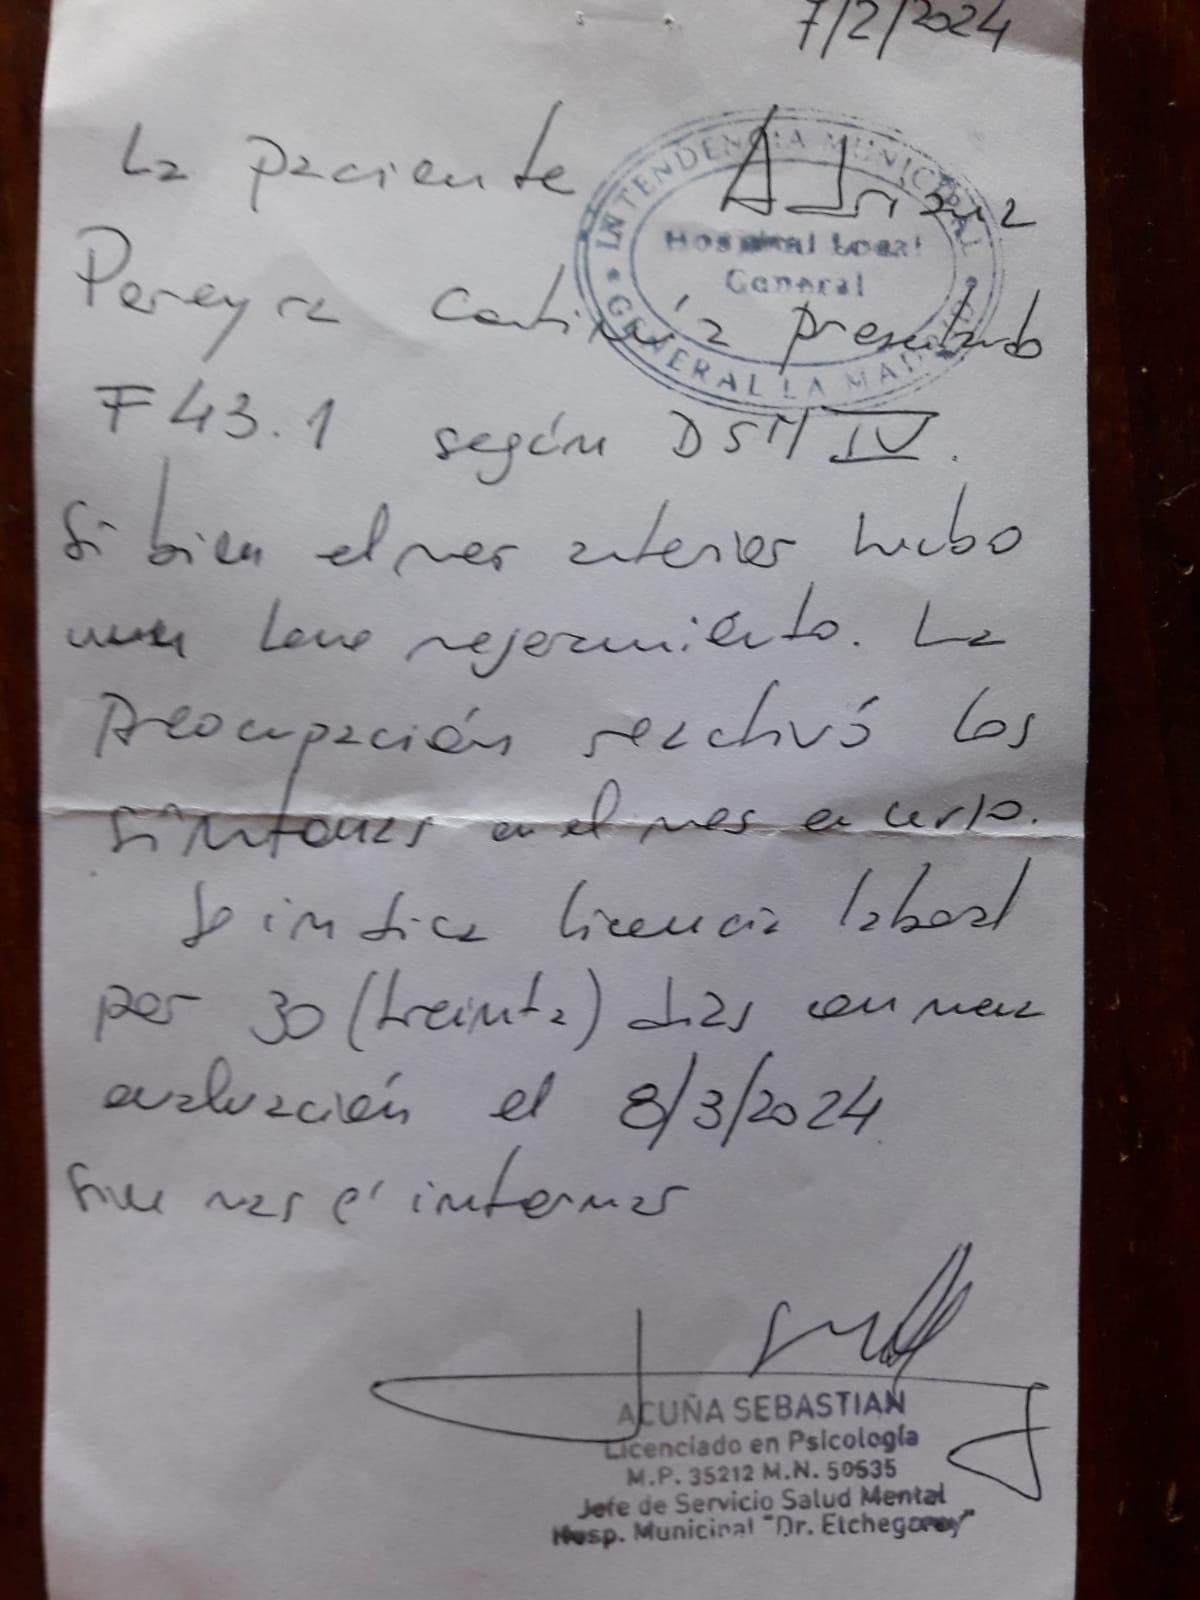 7/2/2024
INTENDENCIA MUNICIPAL
Hospital Local
General
GENERAL LA MADRID
La paciente Adriana
Pereyra continúa presentando
F 43.1 según DSM IV.
Si bien el mes anterior hubo
una leve mejoramiento. La
Preocupación reactivó los
síntomas en el mes en curso.
Se indica licencia laboral
por 30 (treinta) días con nueva
evaluación el 8/3/2024
Sin más
ACUÑA SEBASTIAN
Licenciado en Psicología
M.P. 35212 M.N. 50535
Jefe de Servicio Salud Mental
Hosp. Municipal "Dr. Etchegoray"